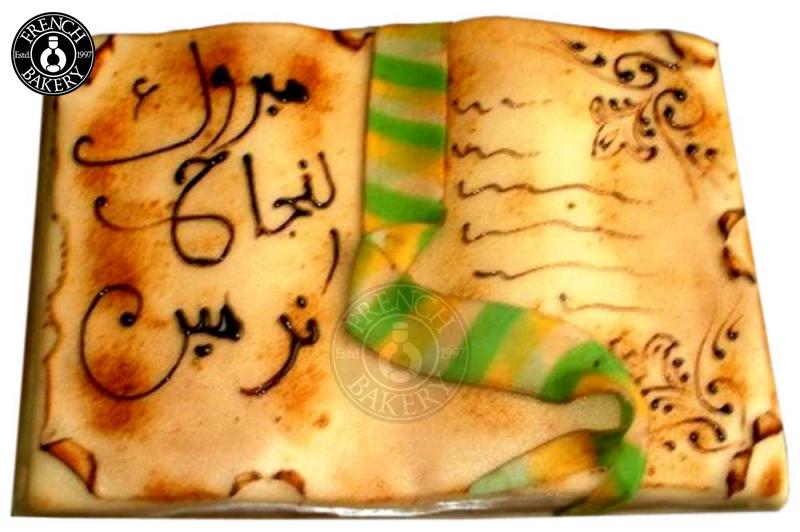 FRENCH
Estd. 1997
BAKERY
مبروك
لنجاح
نرمين
FRENCH
Estd. 1997
BAKERY